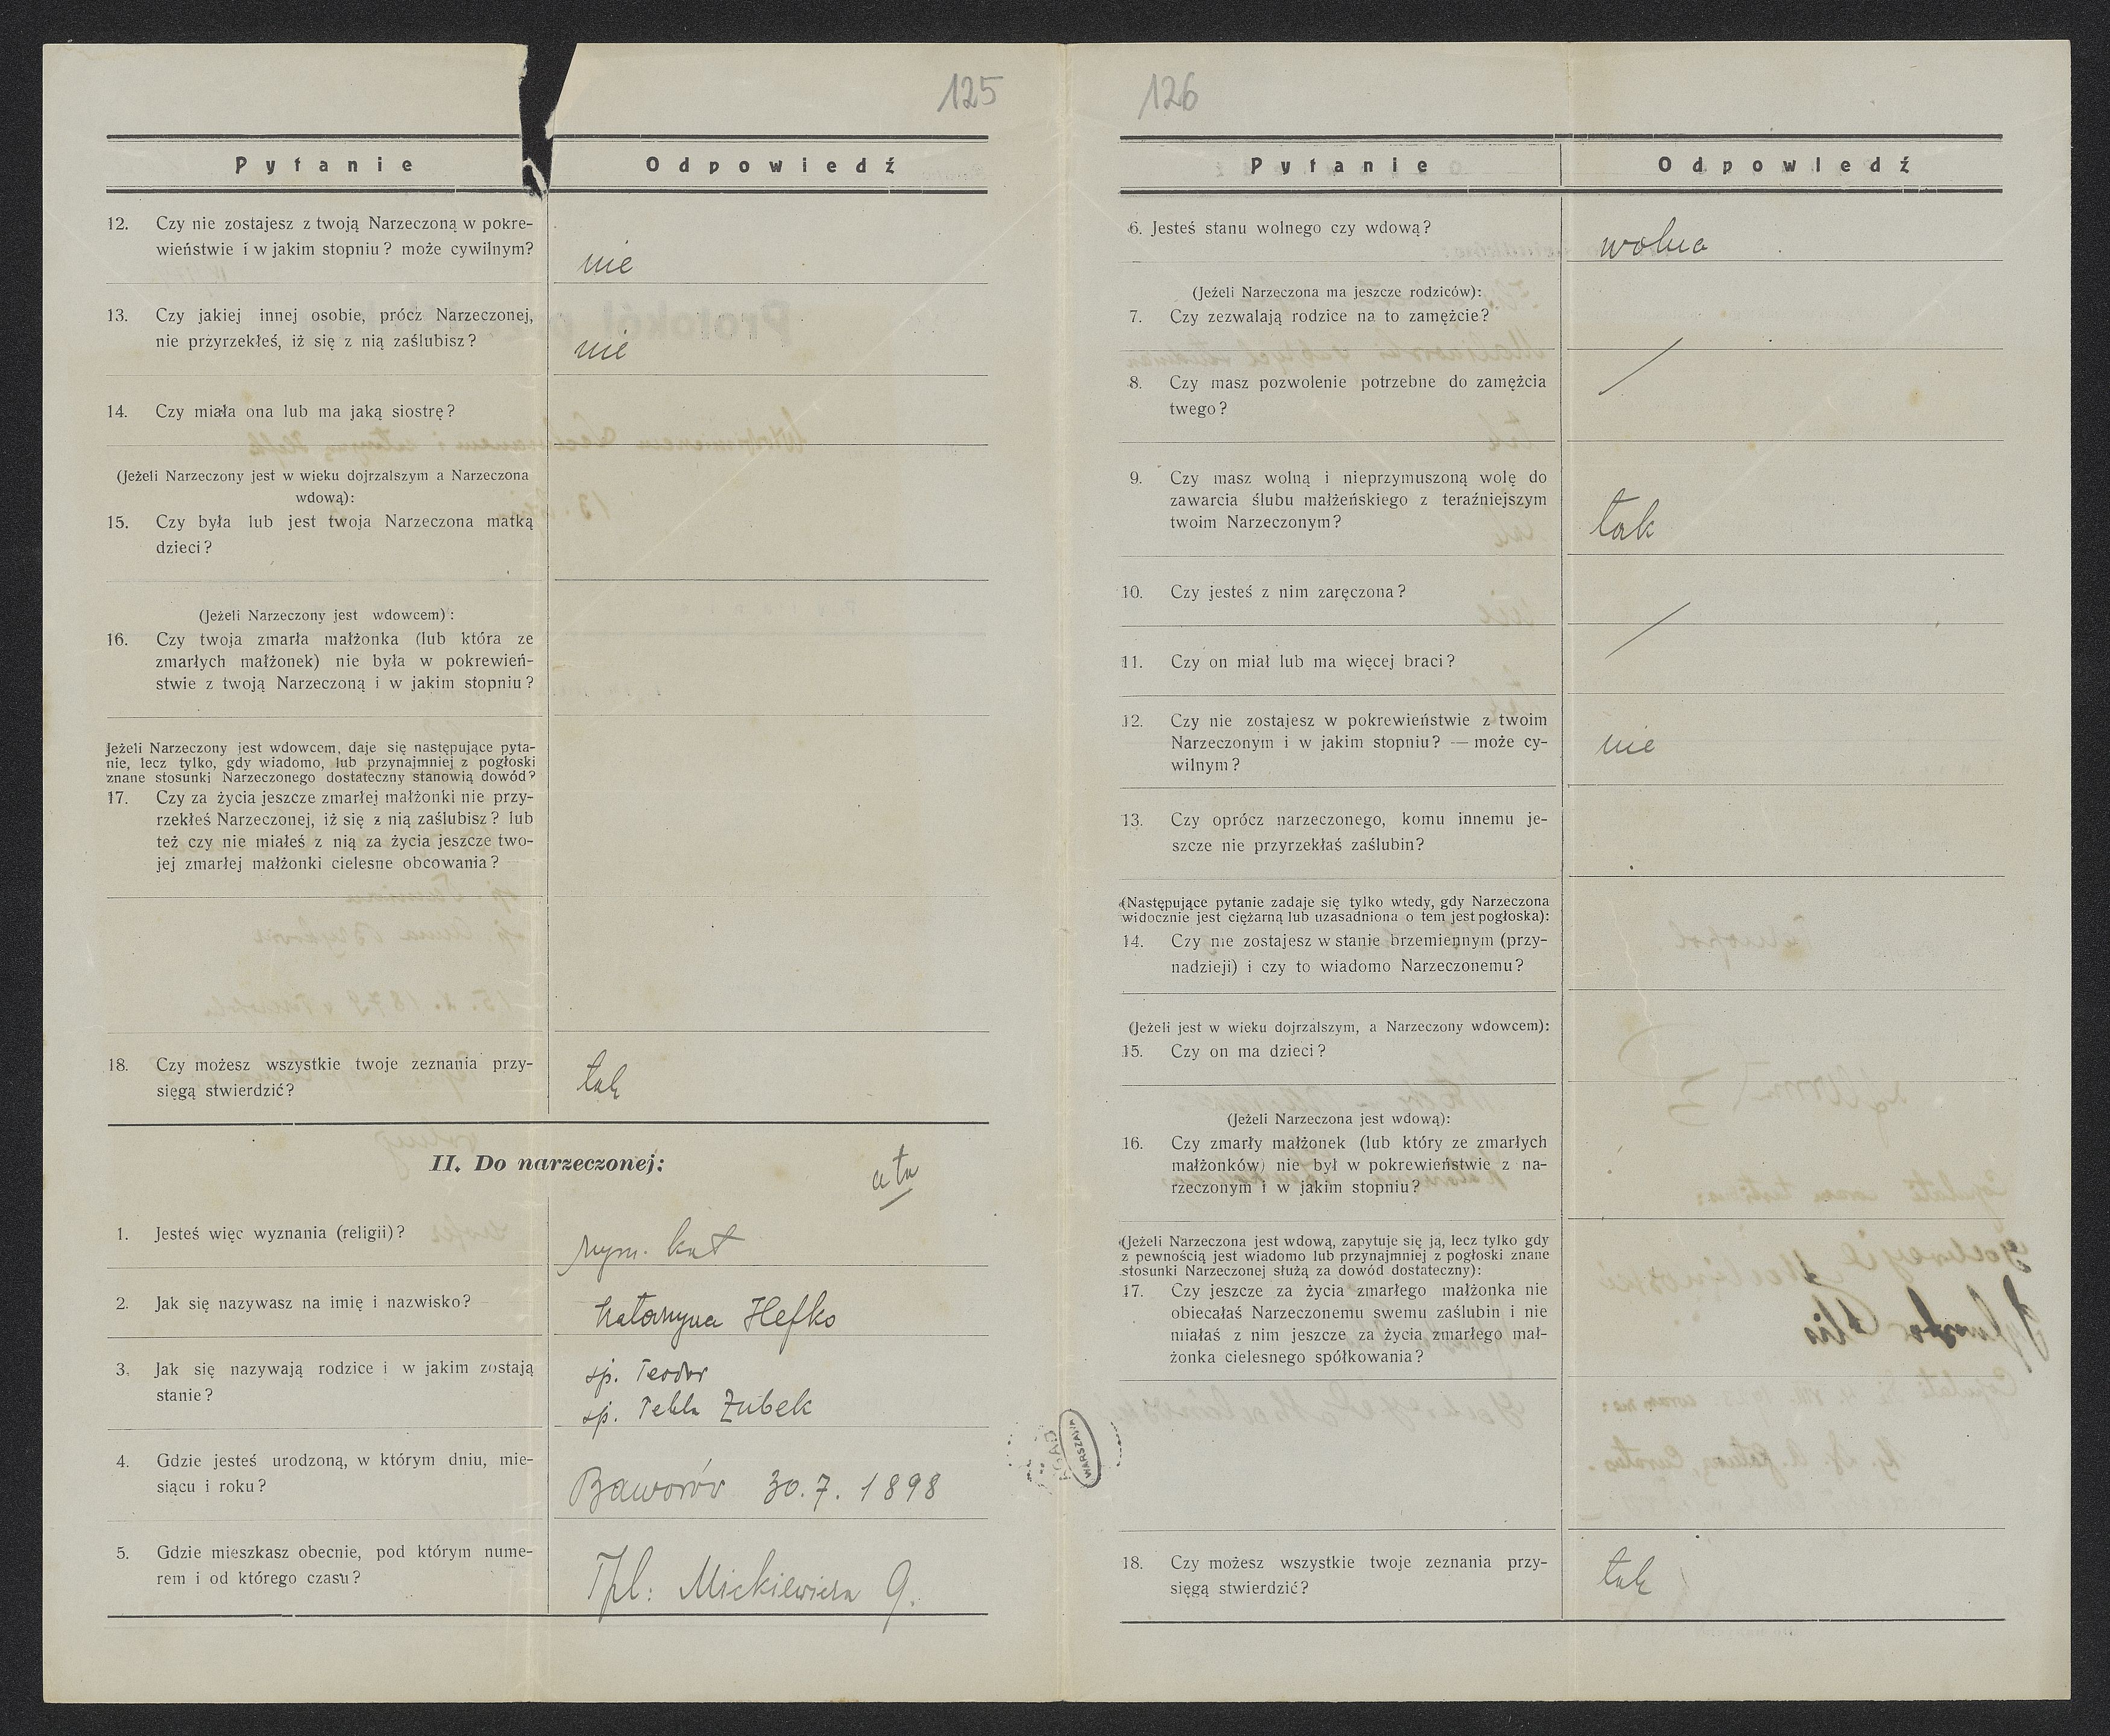 125
Pytanie Odpowiedź
12. Czy nie zostajesz z twoją Narzeczoną w pokre-
wieństwie i w jakim stopniu? może cywilnym?
nie
13. Czy jakiej innej osobie, prócz Narzeczonej,
nie przyrzekłeś, iż się z nią zaślubisz?
nie
14. Czy miała ona lub ma jaką siostrę?
(Jeżeli Narzeczony jest w wieku dojrzalszym a Narzeczona
wdową):
15. Czy była lub jest twoja Narzeczona matką
dzieci?
(Jeżeli Narzeczony jest wdowcem):
16. Czy twoja zmarła małżonka (lub która ze
zmarłych małżonek) nie była w pokrewień-
stwie z twoją Narzeczoną i w jakim stopniu?
Jeżeli Narzeczony jest wdowcem, daje się następujące pyta-
nie, lecz tylko, gdy wiadomo, lub przynajmniej z pogłoski
znane stosunki Narzeczonego dostateczny stanowią dowód?
17. Czy za życia jeszcze zmarłej małżonki nie przy-
rzekłeś Narzeczonej, iż się z nią zaślubisz? lub
też czy nie miałeś z nią za życia jeszcze two-
jej zmarłej małżonki cielesne obcowania?
18. Czy możesz wszystkie twoje zeznania przy-
sięgą stwierdzić?
tak
II. Do narzeczonej:
1. Jesteś więc wyznania (religii)?
rzym. kat
2. Jak się nazywasz na imię i nazwisko?
Katarzyna Hefko
3. Jak się nazywają rodzice i w jakim zostają
stanie?
śp. Teodor
śp. Tekla Zubek
4. Gdzie jesteś urodzoną, w którym dniu, mie-
siącu i roku?
Baworów 30. 7. 1898
5. Gdzie mieszkasz obecnie, pod którym nume-
rem i od którego czasu?
Tpl: Mickiewicza 9.
126
Pytanie Odpowiedź
6. Jesteś stanu wolnego czy wdową?
wolna
(Jeżeli Narzeczona ma jeszcze rodziców):
7. Czy zezwalają rodzice na to zamężcie?
8. Czy masz pozwolenie potrzebne do zamężcia
twego?
9. Czy masz wolną i nieprzymuszoną wolę do
zawarcia ślubu małżeńskiego z teraźniejszym
twoim Narzeczonym?
tak
10. Czy jesteś z nim zaręczona?
11. Czy on miał lub ma więcej braci?
12. Czy nie zostajesz w pokrewieństwie z twoim
Narzeczonym i w jakim stopniu? — może cy-
wilnym?
nie
13. Czy oprócz narzeczonego, komu innemu je-
szcze nie przyrzekłaś zaślubin?
(Następujące pytanie zadaje się tylko wtedy, gdy Narzeczona
widocznie jest ciężarną lub uzasadniona o tem jest pogłoska):
14. Czy nie zostajesz w stanie brzemiennym (przy-
nadzieji) i czy to wiadomo Narzeczonemu?
(Jeżeli jest w wieku dojrzalszym, a Narzeczony wdowcem):
15. Czy on ma dzieci?
(Jeżeli Narzeczona jest wdową):
16. Czy zmarły małżonek (lub który ze zmarłych
małżonków) nie był w pokrewieństwie z na-
rzeczonym i w jakim stopniu?
(Jeżeli Narzeczona jest wdową, zapytuje się ją, lecz tylko gdy
z pewnością jest wiadomo lub przynajmniej z pogłoski znane
stosunki Narzeczonej służą za dowód dostateczny):
17. Czy jeszcze za życia zmarłego małżonka nie
obiecałaś Narzeczonemu swemu zaślubin i nie
miałaś z nim jeszcze za życia zmarłego mał-
żonka cielesnego spółkowania?
18. Czy możesz wszystkie twoje zeznania przy-
sięgą stwierdzić?
tak
AGAD
WARSZAWA